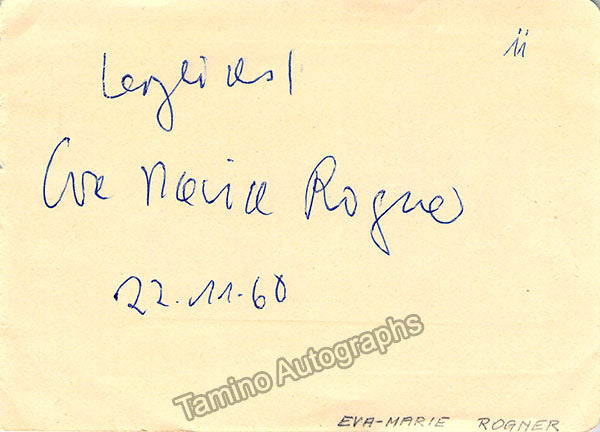 herzlichst
ii
Eva Maria Rogner
22.11.60
Tamino Autographs
EVA-MARIE ROGNER